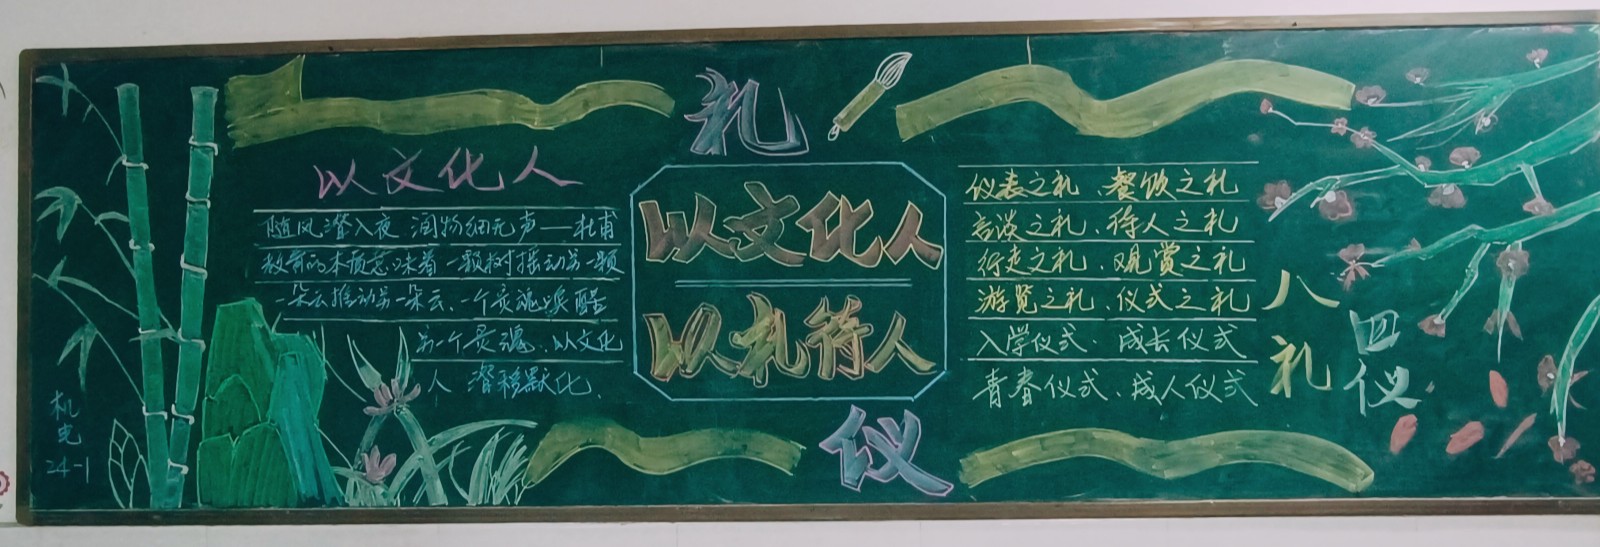 礼
以文化人
随风潜入夜 润物细无声——杜甫
教育的本质意味着 一颗树摇动另一颗
一朵云推动另一朵云、一个灵魂唤醒
另一个灵魂、以文化
人 潜移默化、
以文化人
以礼待人
仪
仪表之礼、餐饮之礼
言谈之礼、待人之礼
行走之礼、观赏之礼
游览之礼、仪式之礼
入学仪式、成长仪式
青春仪式、成人仪式
八礼
四仪
机电
24-1